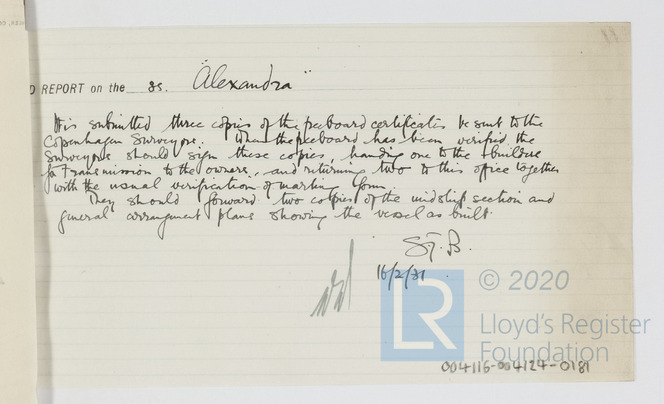 D REPORT on the ss. "Alexandra"
It is submitted three copies of the freeboard certificates be sent to the
Copenhagen Surveyors. When the freeboard has been verified the
Surveyors should sign these copies, handing one to the builders
for transmission to the owners, and returning two to this office together
with the usual verification of marking form.
They should forward two copies of the midship section and
general arrangement plans showing the vessel as built.
16/2/31
LR
© 2020
Lloyd's Register
Foundation
004116-004124-0181